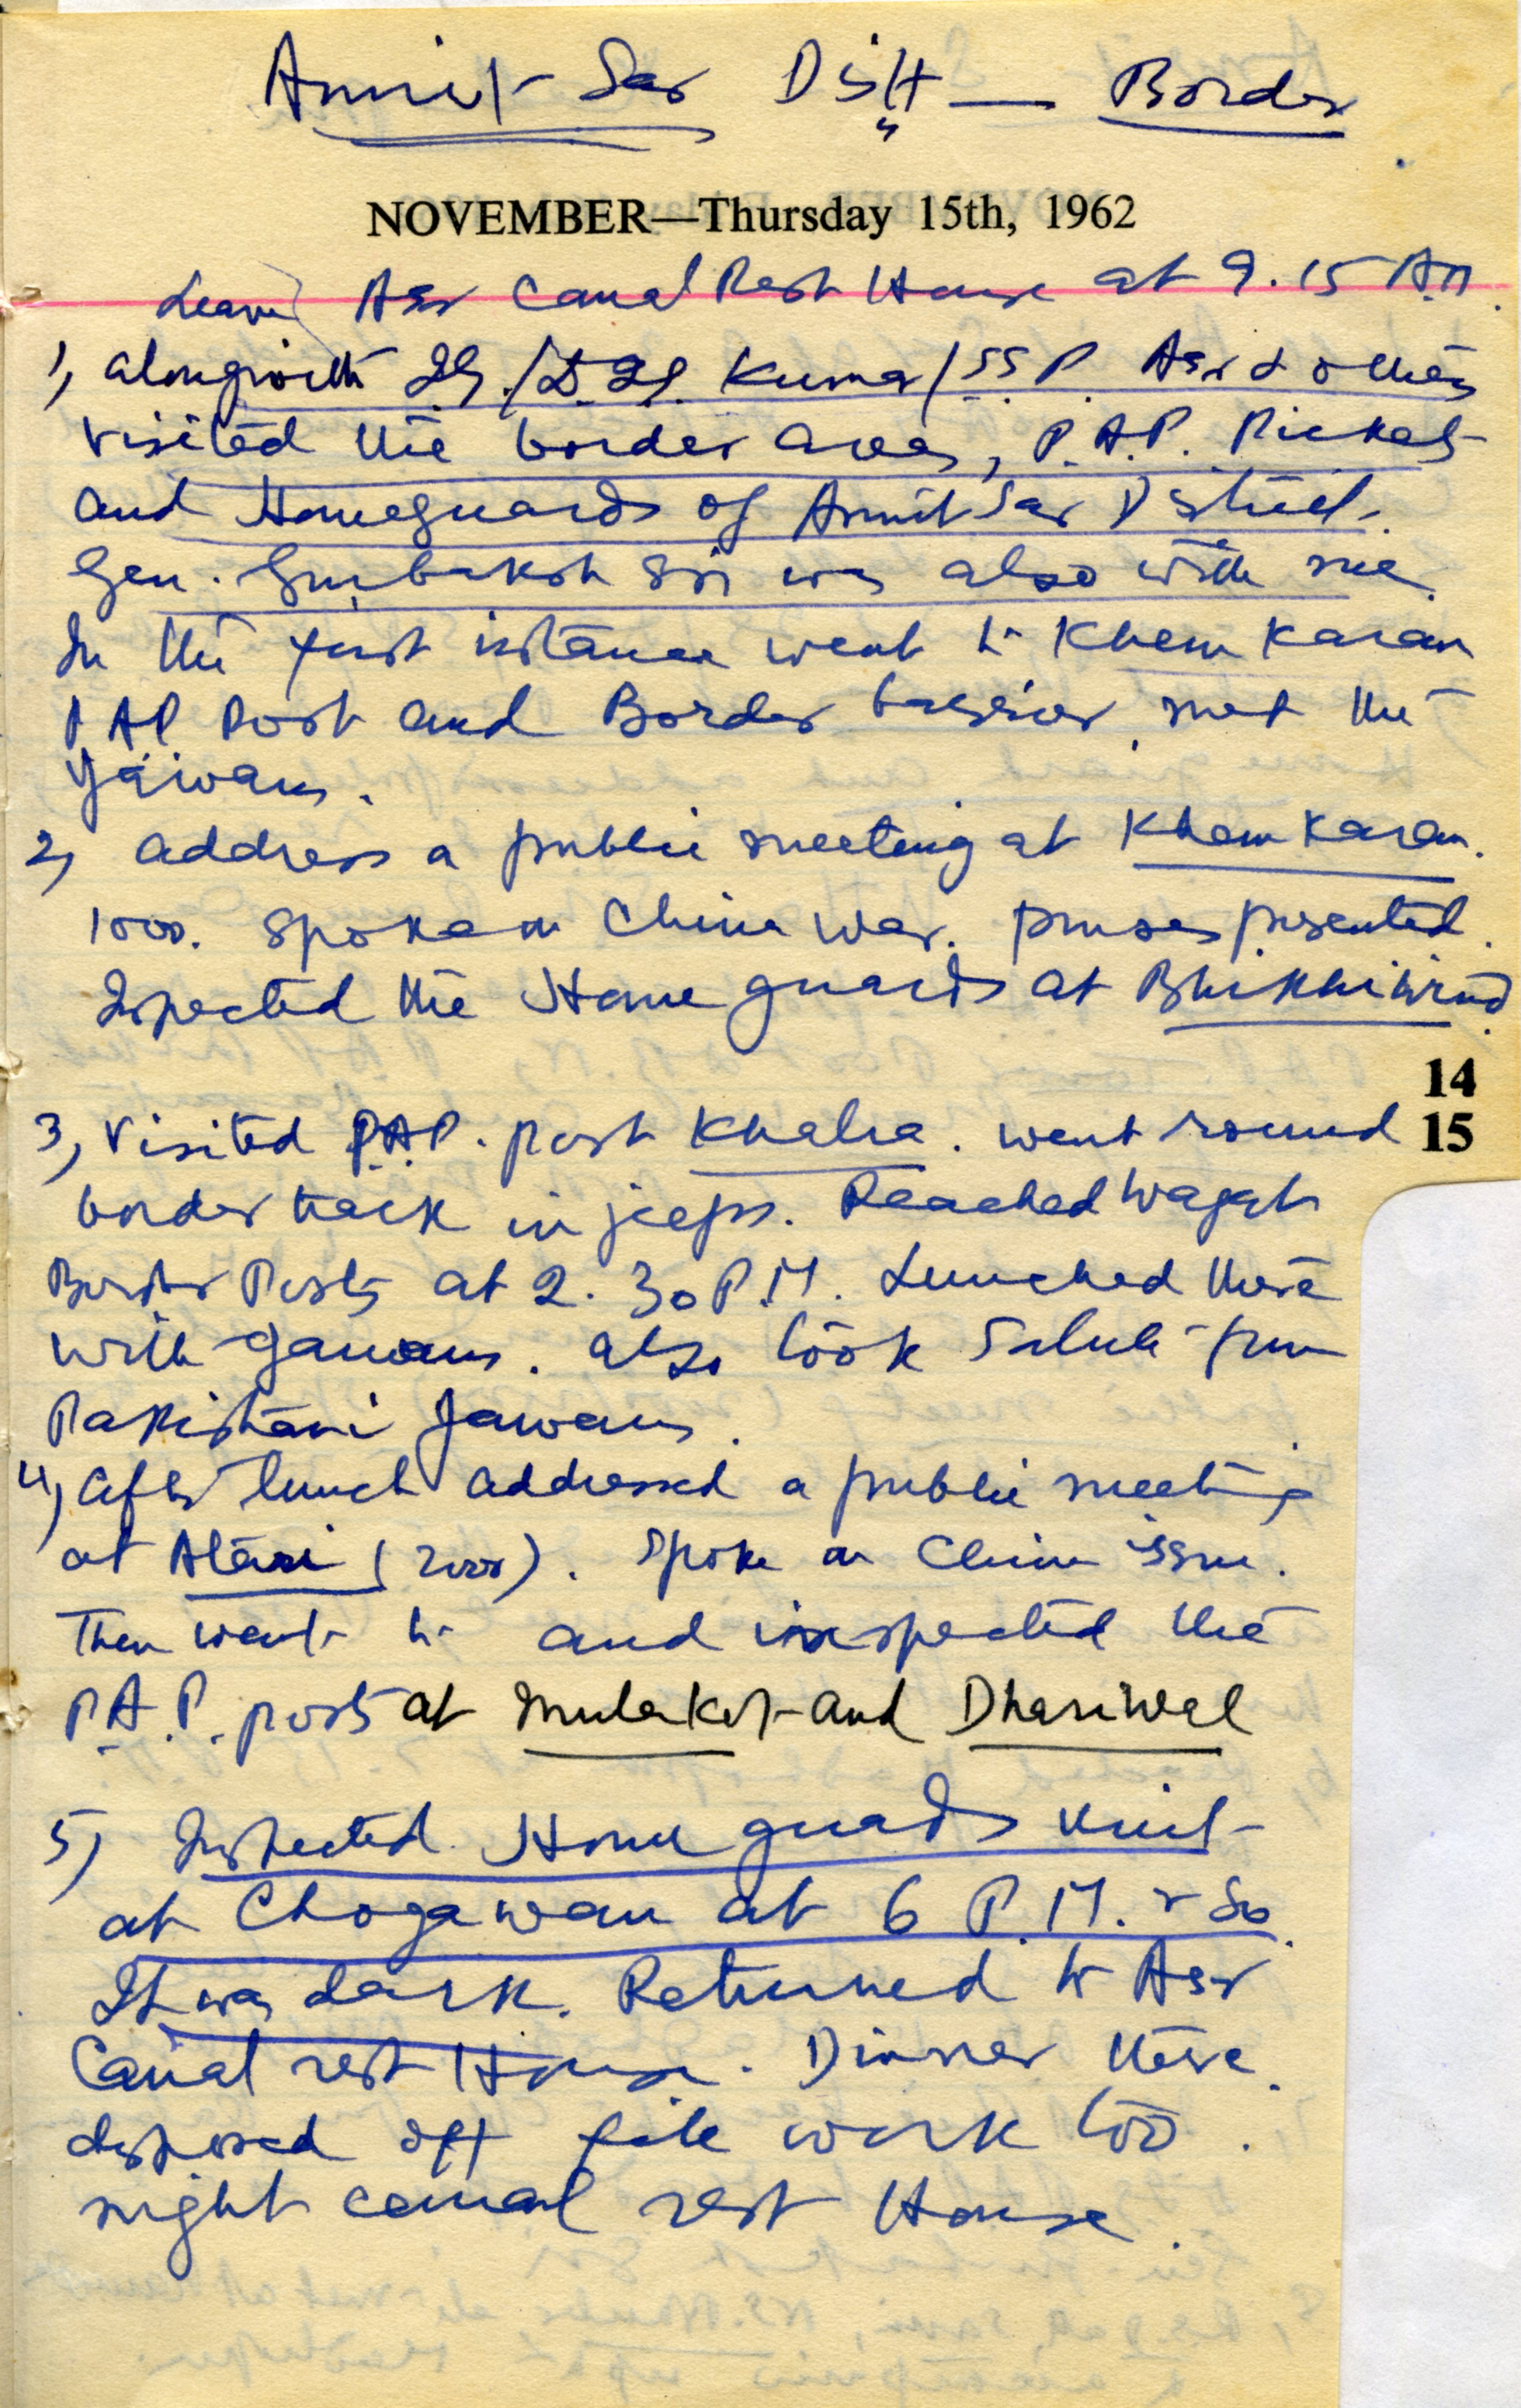 Amrit Sar Distt — Border
NOVEMBER—Thursday 15th, 1962
Leave Asr Canal Rest House at 9.15 A.M.
1, alongwith IG./D.IG. Kumar/SSP Asr & others
visited the border areas, P.A.P. Pickets
and Homeguards of Amrit Sar District.
Gen. Gurbaksh Sin was also with me.
In the first instance went to Khem Karan
PAP Post and Border barrier, met the
Jawans.
2, address a public meeting at Khem Karan.
1000. Spoke on China War. purses presented.
Inspected the Home guards at Bhikhiwind.
14
3, Visited P.A.P. post Khalra. went round
15
border track in jeeps. Reached Wagah
Border Posts at 2.30 P.M. Lunched there
with Jawans. also took Salute from
Pakistani Jawans.
4, after lunch addressed a public meeting
at Atari (2000). Spoke on China issue.
Then went to and inspected the
P.A.P. posts at Mulakot and Dhariwal
5) Inspected Home guards Unit
at Chogawan at 6 P.M. & So.
It was dark. Returned to Asr
Canal rest House. Dinner there.
disposed off file work too.
night canal rest House.